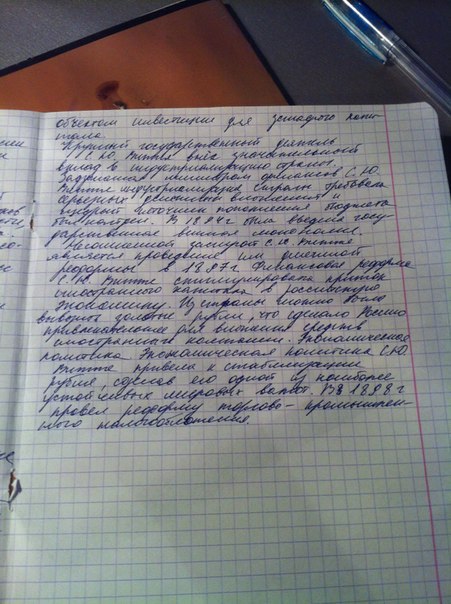 объектом инвестиции для западного капи-
тала.
Крупный государственный деятель
С.Ю. Витте внёс значительный
вклад в индустриализацию страны.
министром финансов С.Ю.
Витте индустриализация страны требовала
серьёзных денежных вложений и
источник пополнения бюджета
В 1894г была введена госу-
дарственная винная монополия.
заслугой С.Ю. Витте
является проведение им денежной
реформы в 1897г. Финансовая реформа
С.Ю. Витте стимулировала приток
иностранного в российскую
экономику. Из страны можно было
вывозить золотые рубли, что сделало Россию
привлекательнее для вложения средств
иностранных компаний.
политика Экономическая политика С.Ю.
Витте привела к стабилизации
рубля, сделав его одной из наиболее
устойчивых мировых валют. В 1898г
провел реформу торгово-промышлен-
ного налогообложения.